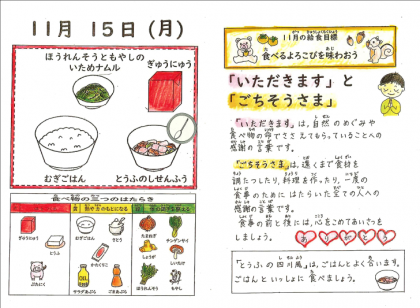 11月 15日(月)
ほうれんそうともやしの
いためナムル
ぎゅうにゅう
むぎごはん
とうふのしせんふう
食べ物の三つのはたらき
ぎゅうにゅう
とうふ
ぶたにく
むぎごはん
さとう
かたくりこ
サラダあぶら
ごまあぶら
たまねぎ
にんじん
チンゲンサイ
しょうが
ほうれんそう
もやし
11月の給食目標
食べるよろこびを味わおう
「いただきます」と
「ごちそうさま」
「いただきます」は、自然のめぐみや
食べ物の命でささえてもらっていることへの
感謝の言葉です。
「ごちそうさま」は、遠くまで食材を
調たつしたり、料理を作ったり、一度の
食事のためにはたらいた全ての人への
感謝の言葉です。
食事の前と後には、心をこめてあいさつを
しましょう。
ありがとう
「とうふの四川風」は、ごはんとよく合います。
ごはんといっしょに食べましょう。